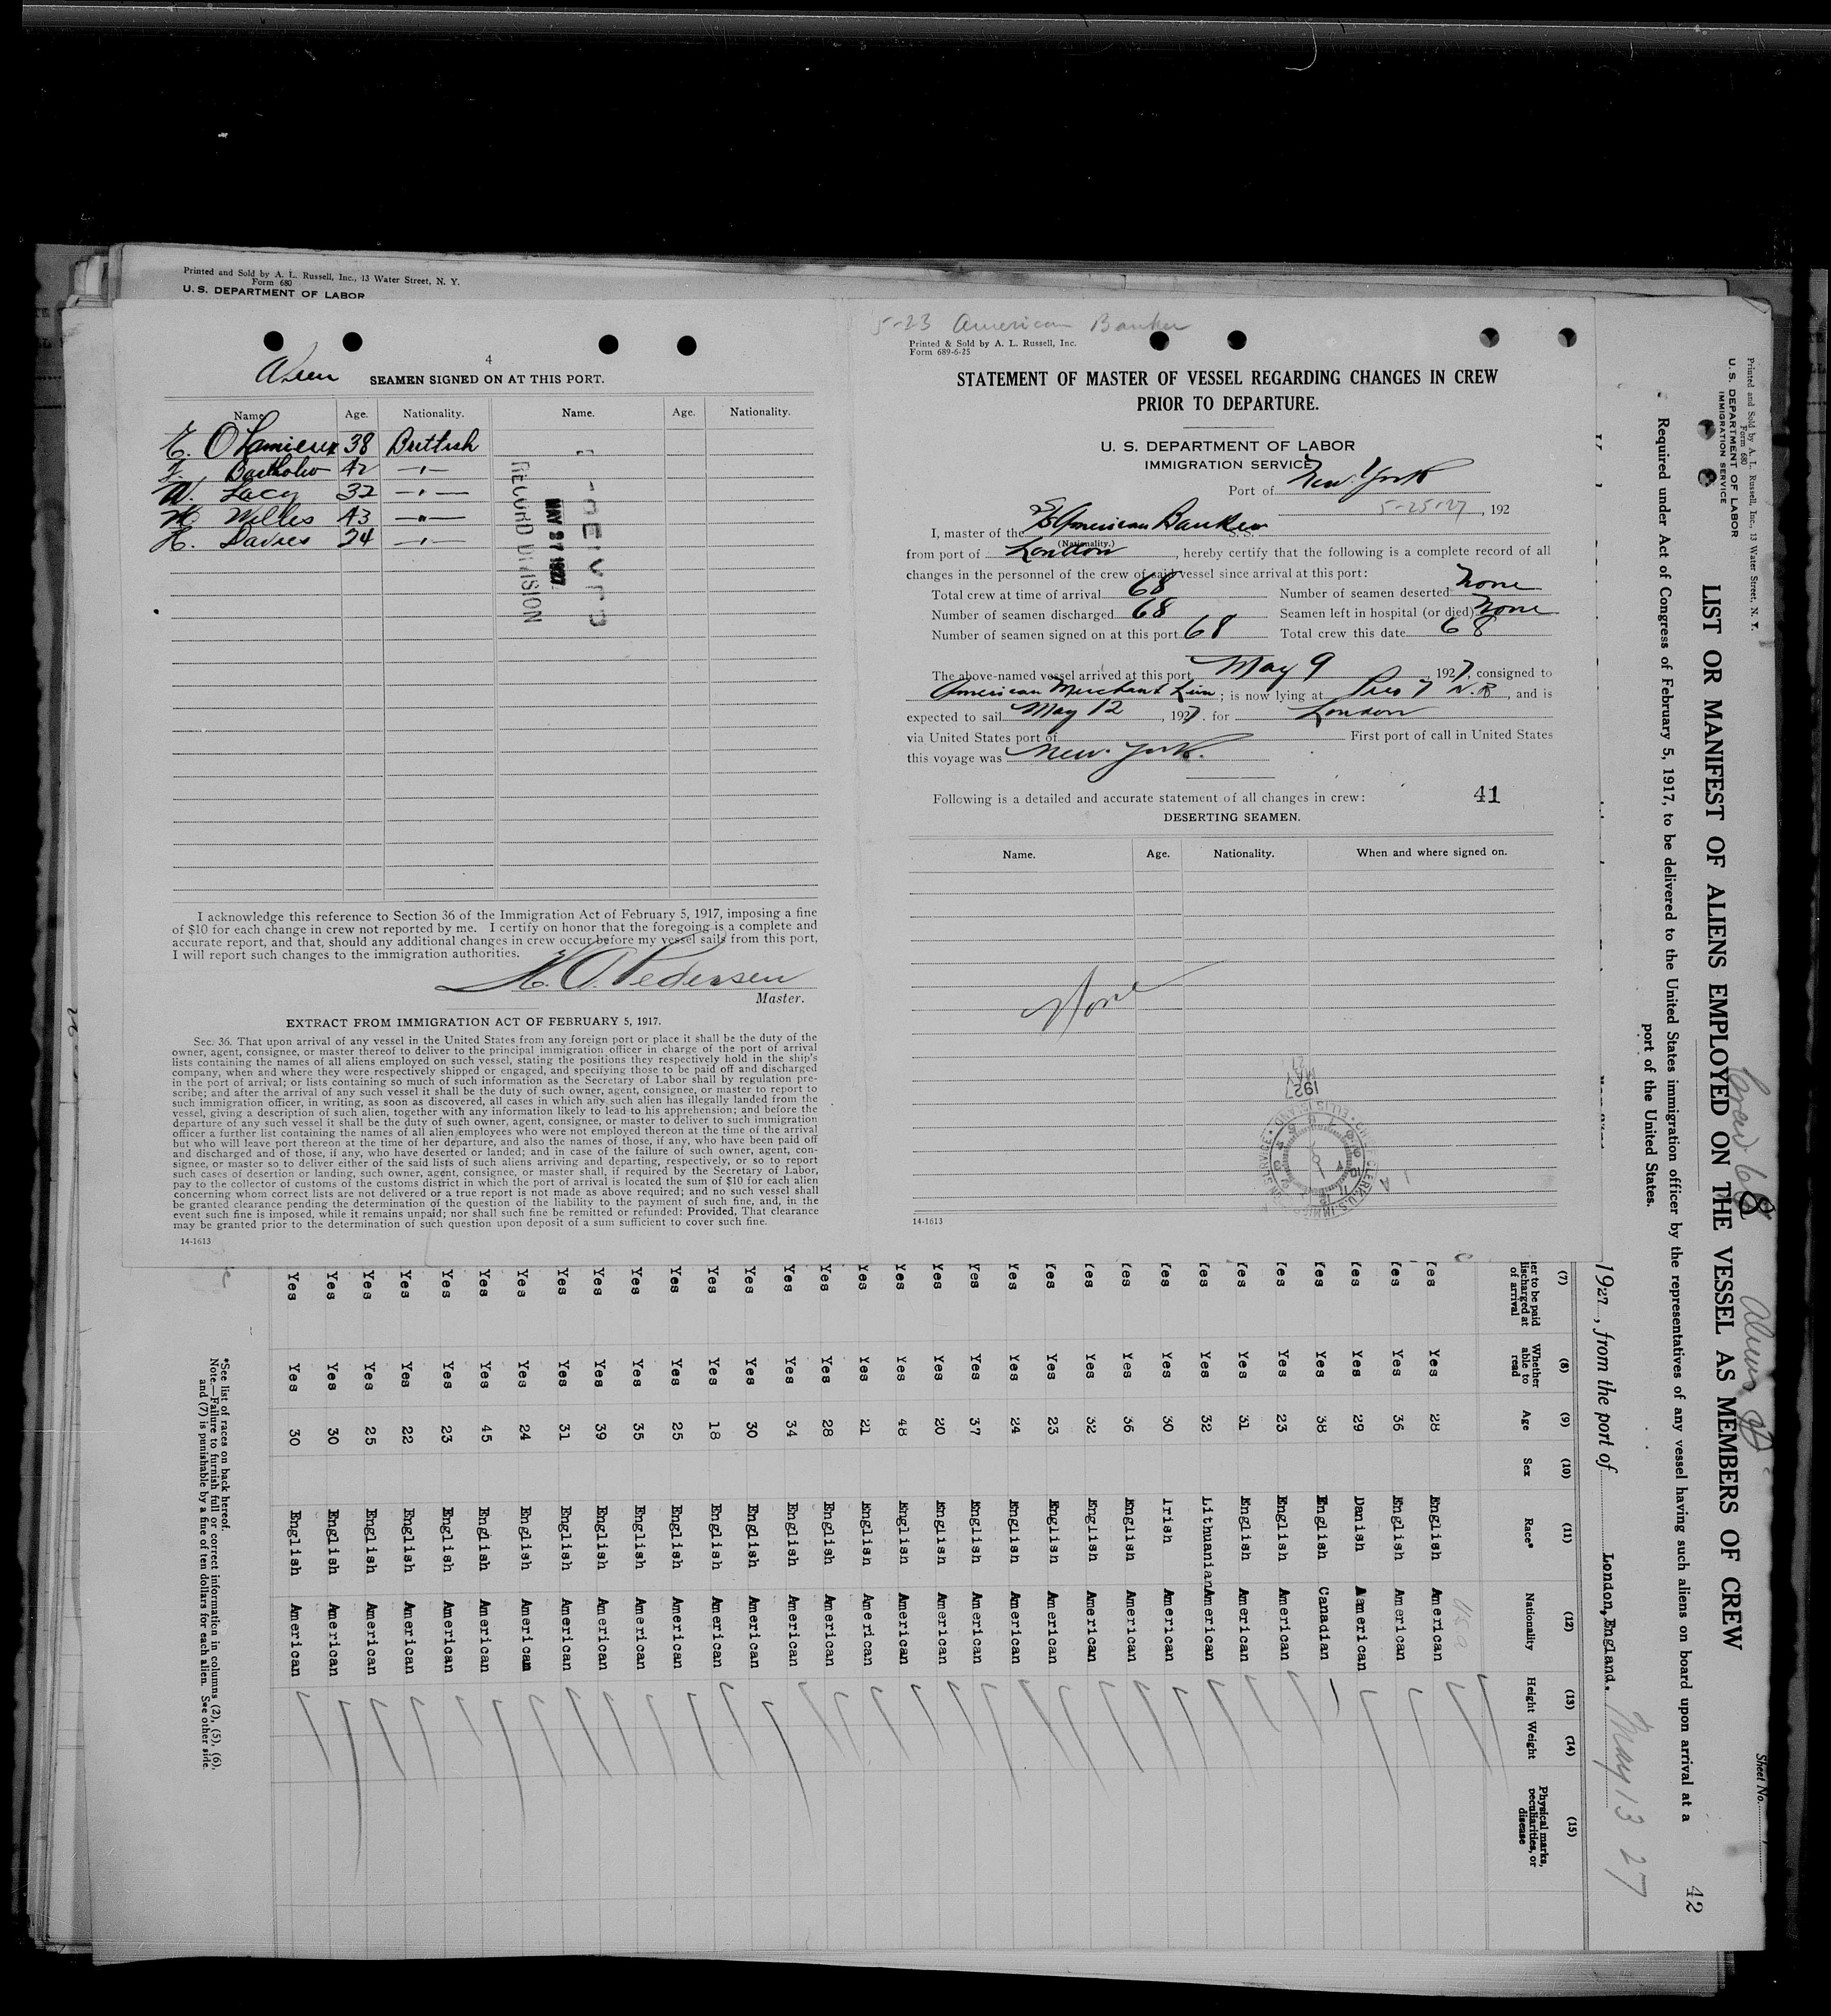 Printed and Sold by A. L. Russell, Inc., 13 Water Street, N. Y.
Form 680
U. S. DEPARTMENT OF LABOR
4
Alien SEAMEN SIGNED ON AT THIS PORT.
Name. Age. Nationality. Name. Age. Nationality.
38 British
42 —"—
W. Lacy 32 —"—
Willes 43 —"—
H. Davies 24 —"—
RECEIVED
MAY 27 1927
RECORD DIVISION
I acknowledge this reference to Section 36 of the Immigration Act of February 5, 1917, imposing a fine
of $10 for each change in crew not reported by me. I certify on honor that the foregoing is a complete and
accurate report, and that, should any additional changes in crew occur before my vessel sails from this port,
I will report such changes to the immigration authorities.
H. O. Pedersen
Master.
EXTRACT FROM IMMIGRATION ACT OF FEBRUARY 5, 1917.
Sec. 36. That upon arrival of any vessel in the United States from any foreign port or place it shall be the duty of the
owner, agent, consignee, or master thereof to deliver to the principal immigration officer in charge of the port of arrival
lists containing the names of all aliens employed on such vessel, stating the positions they respectively hold in the ship's
company, when and where they were respectively shipped or engaged, and specifying those to be paid off and discharged
in the port of arrival; or lists containing so much of such information as the Secretary of Labor shall by regulation pre-
scribe; and after the arrival of any such vessel it shall be the duty of such owner, agent, consignee, or master to report to
such immigration officer, in writing, as soon as discovered, all cases in which any such alien has illegally landed from the
vessel, giving a description of such alien, together with any information likely to lead to his apprehension; and before the
departure of any such vessel it shall be the duty of such owner, agent, consignee, or master to deliver to such immigration
officer a further list containing the names of all alien employees who were not employed thereon at the time of the arrival
but who will leave port thereon at the time of her departure, and also the names of those, if any, who have been paid off
and discharged and of those, if any, who have deserted or landed; and in case of the failure of such owner, agent, con-
signee, or master so to deliver either of the said lists of such aliens arriving and departing, respectively, or so to report
such cases of desertion or landing, such owner, agent, consignee, or master shall, if required by the Secretary of Labor,
pay to the collector of customs of the customs district in which the port of arrival is located the sum of $10 for each alien
concerning whom correct lists are not delivered or a true report is not made as above required; and no such vessel shall
be granted clearance pending the determination of the question of the liability to the payment of such fine, and, in the
event such fine is imposed, while it remains unpaid; nor shall such fine be remitted or refunded: Provided, That clearance
may be granted prior to the determination of such question upon deposit of a sum sufficient to cover such fine.
14-1613
5-23 American Banker
Printed & Sold by A. L. Russell, Inc.
Form 689-6-25
STATEMENT OF MASTER OF VESSEL REGARDING CHANGES IN CREW
PRIOR TO DEPARTURE.
U. S. DEPARTMENT OF LABOR
IMMIGRATION SERVICE
Port of New York
5-25-27, 192
I, master of the SS American Banker S. S.
(Nationality.)
from port of London, hereby certify that the following is a complete record of all
changes in the personnel of the crew of said vessel since arrival at this port:
Total crew at time of arrival 68 Number of seamen deserted none
Number of seamen discharged 68 Seamen left in hospital (or died) none
Number of seamen signed on at this port 68 Total crew this date 68
The above-named vessel arrived at this port May 9, 1927, consigned to
American Merchant Line; is now lying at Pier 7 N.R, and is
expected to sail May 12, 1927. for London
via United States port of First port of call in United States
this voyage was New York.
Following is a detailed and accurate statement of all changes in crew: 41
DESERTING SEAMEN.
Name. Age. Nationality. When and where signed on.
None
MAY 27 1927
14-1613
Sheet No.
42
Printed and Sold by A. L. Russell, Inc., 13 Water Street, N. Y.
Form 680
U. S. DEPARTMENT OF LABOR
IMMIGRATION SERVICE
Crew 68
LIST OR MANIFEST OF ALIENS EMPLOYED ON THE VESSEL AS MEMBERS OF CREW
Required under Act of Congress of February 5, 1917, to be delivered to the United States immigration officer by the representatives of any vessel having such aliens on board upon arrival at a
port of the United States.
1927, from the port of London, England. May 13 27
(7) (8) (9) (10) (11) (12) (13) (14) (15)
er to be paid discharged at of arrival Whether able to read Age Sex Race* Nationality Height Weight Physical marks, peculiarities, or disease
USA
Yes Yes 28 English American
Yes Yes 36 English American
Yes Yes 29 Danish American
Yes Yes 38 English Canadian
Yes Yes 23 English American
Yes Yes 31 English American
Yes Yes 32 Lithuanian American
Yes Yes 30 Irish American
Yes Yes 36 English American
Yes Yes 32 English American
Yes Yes 23 English American
Yes Yes 24 English American
Yes Yes 37 English American
Yes Yes 20 English American
Yes Yes 48 English American
Yes Yes 21 English American
Yes Yes 28 English American
Yes Yes 34 English American
Yes Yes 30 English American
Yes Yes 18 English American
Yes Yes 25 English American
Yes Yes 35 English American
Yes Yes 39 English American
Yes Yes 31 English American
Yes Yes 24 English American
Yes Yes 45 English American
Yes Yes 23 English American
Yes Yes 22 English American
Yes Yes 25 English American
Yes Yes 30 English American
Yes Yes 30 English American
*See list of races on back hereof.
Note.—Failure to furnish full or correct information in columns (2), (5), (6),
and (7) is punishable by a fine of ten dollars for each alien. See other side.